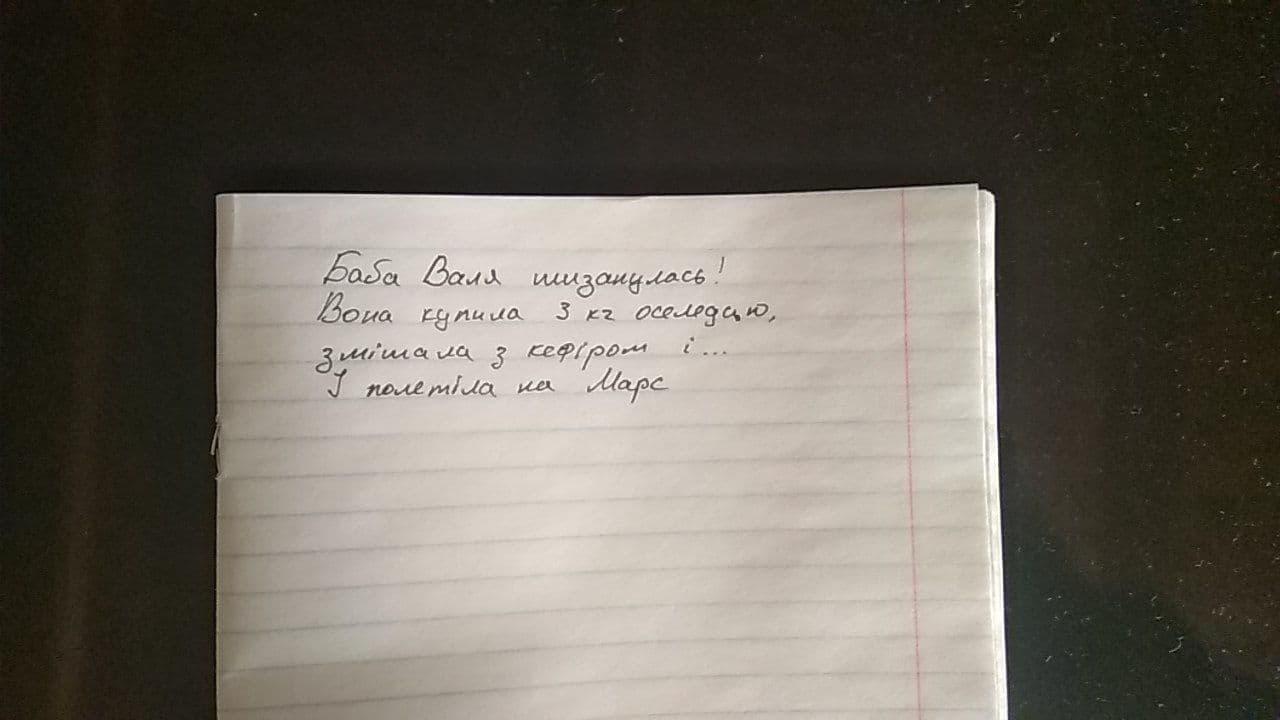 Баба Валя шизанулась!
Вона купила 3 кг оселедцю,
змішала з кефіром і...
І полетіла на Марс